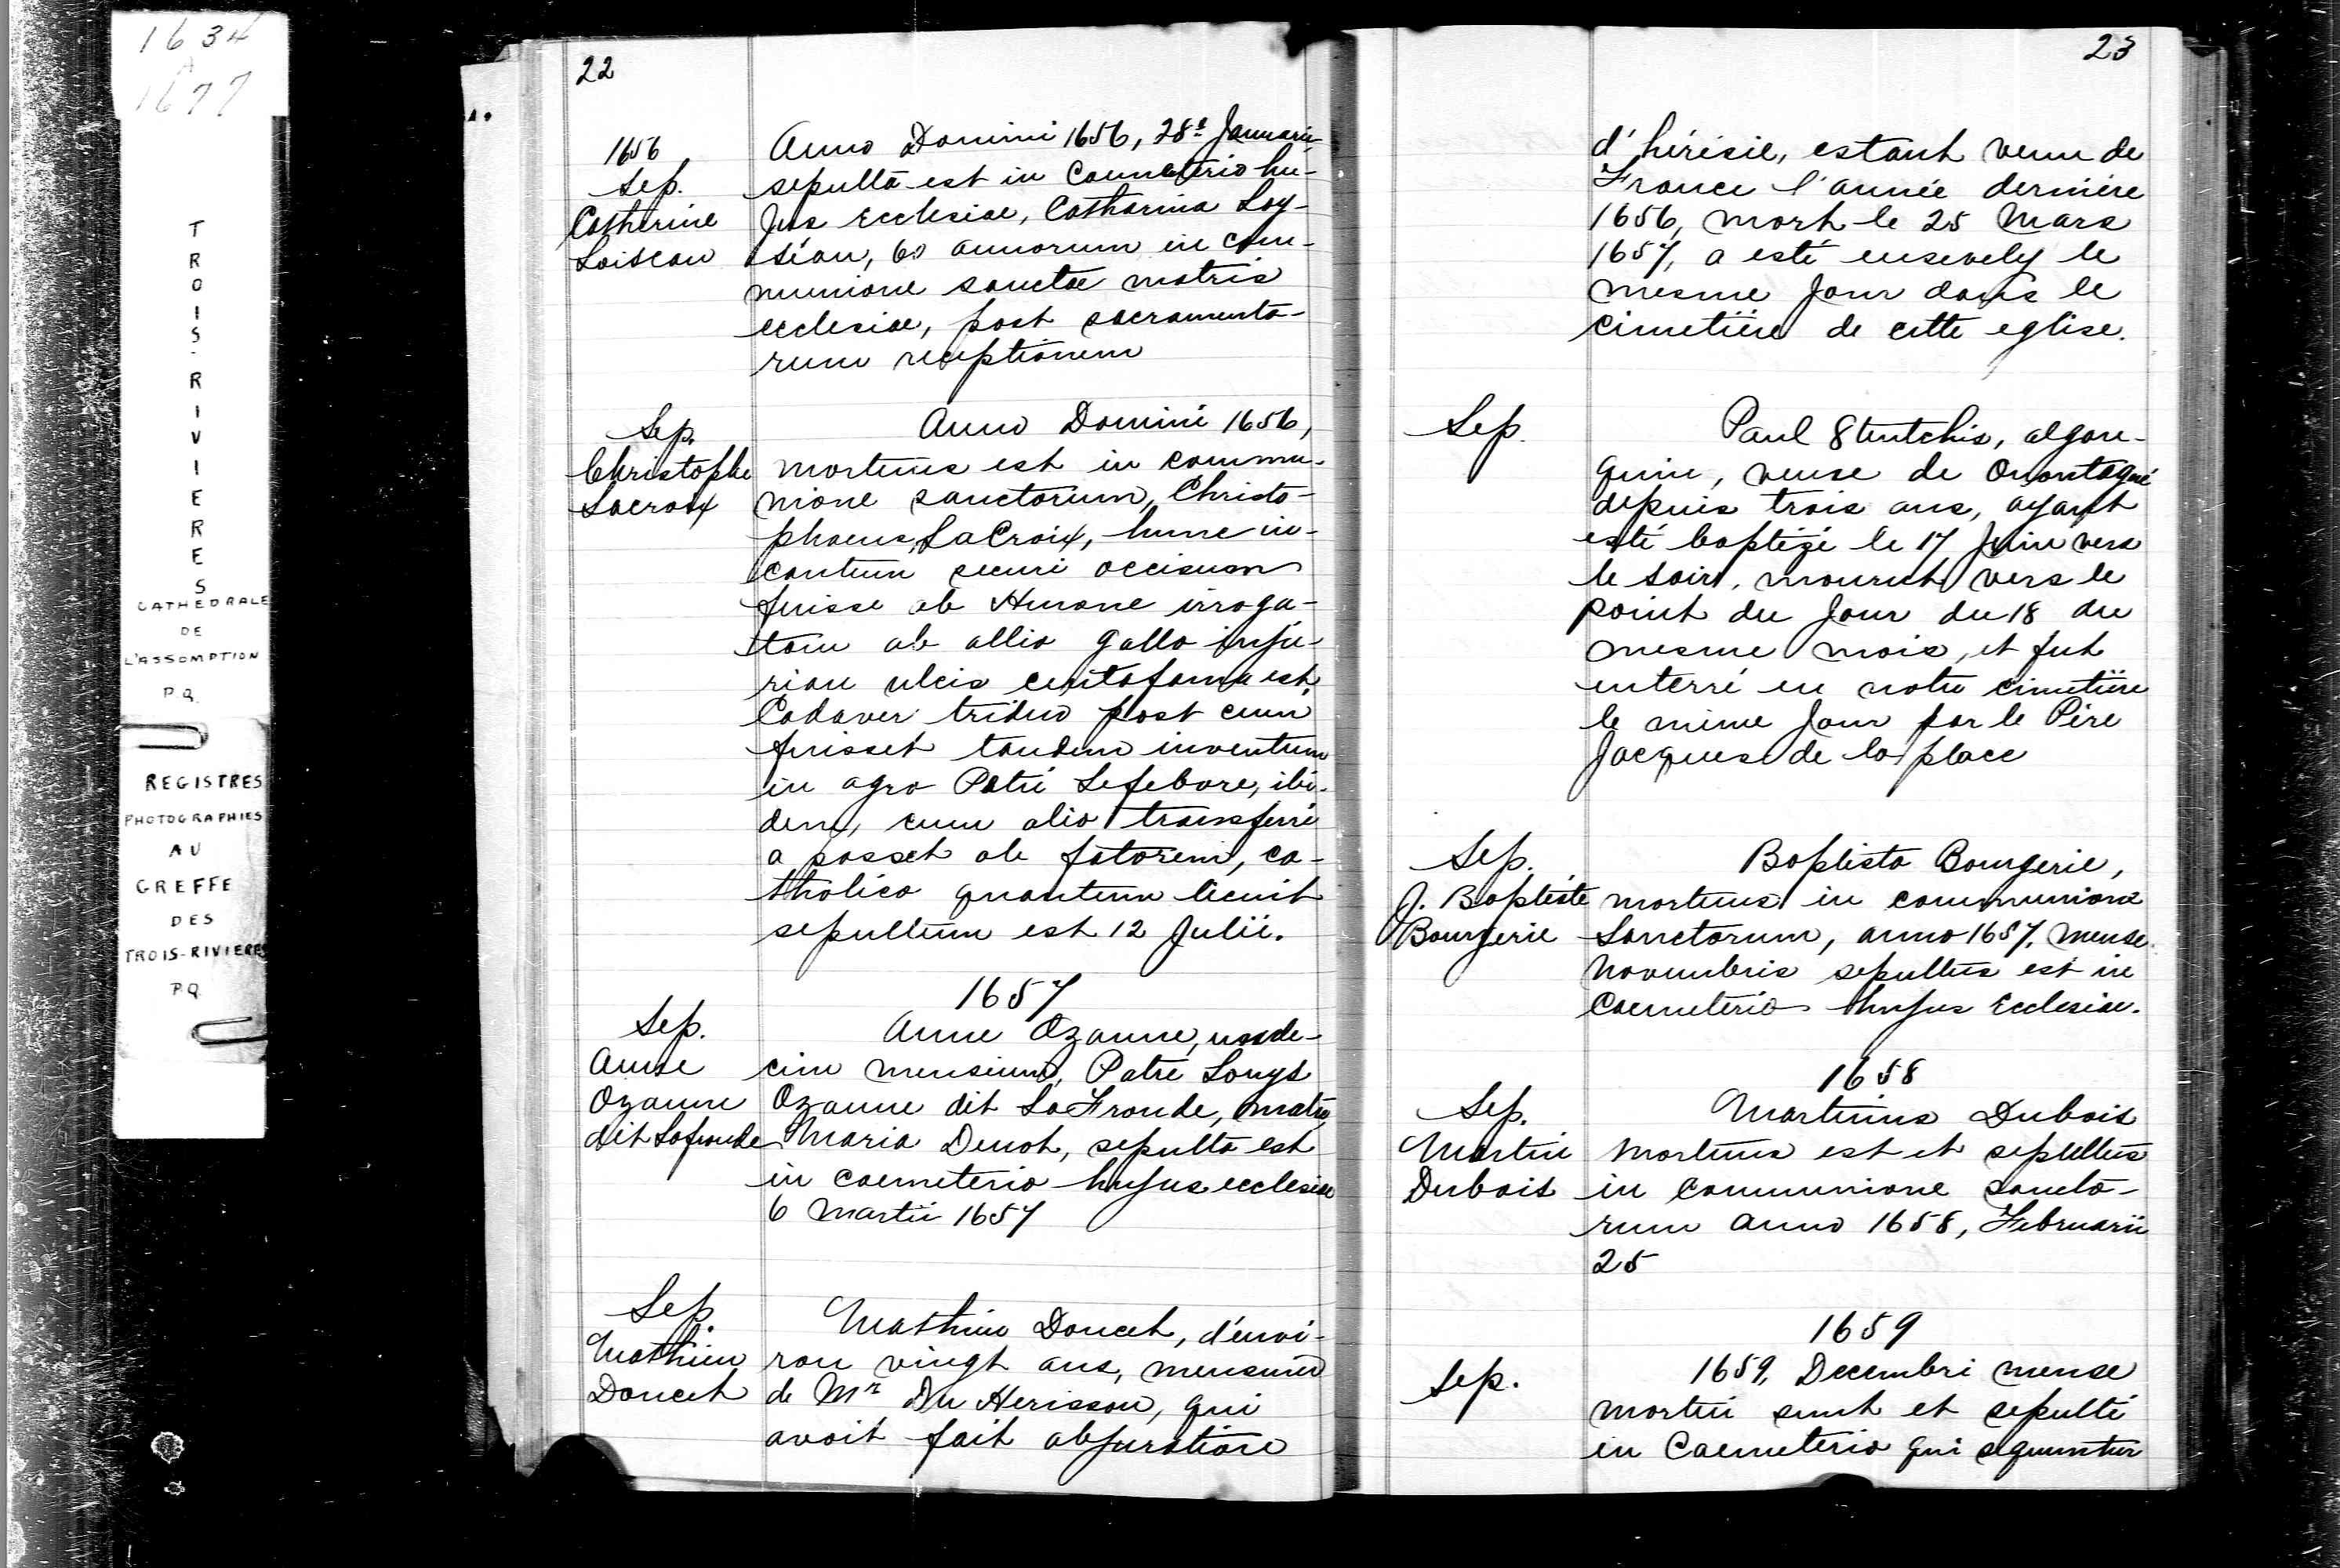 1634
A
1677
TROIS-RIVIERES
CATHEDRALE
DE
L'ASSOMPTION
P.Q.
REGISTRES
PHOTOGRAPHIES
AU
GREFFE
DES
TROIS-RIVIERES
P.Q.
22
1656
Sep.
Catherine
Loiseau
Anno Domini 1656, 28a Januarii,
sepulta est in Coemeterio hu-
jus Ecclesiae, Catharina Loy-
séau, 60 annorum in com-
munione sanctae matris
ecclesiae, post sacramento-
rum receptionem
Sep.
Christophe
Lacroix
Anno Domini 1656,
mortuus est in commu-
nione sanctorum, Christo-
phorus LaCroix, hunc in-
cautum securi occisum
fuisse ab Hurone irroga-
tam ab allio gallo inju-
riam ulcis fama est.
Cadaver triduo post cum
fuisset tandem inventum
in agro Petri Lefebvre, ibi-
dem, cum alio transferri
a posset ob fatorem, ca-
tholico quantum licuit
sepultum est 12 Julii.
1657
Sep.
Anne
Ozanne
dit Lafronde
Anne Ozanne, unde-
cim mensium, Patre Louys
Ozanne dit LaFronde, matre
Maria Denot, sepulta est
in coemeterio hujus ecclesiae
6 Martii 1657
Sep.
Mathieu
Doucet
Mathieu Doucet, d'envi-
ron vingt ans,
de Mr Du Herisson, qui
avoit fait abjuratiore
23
d'hérisie, estant venu de
France l'année dernière
1656, mort le 25 Mars
1657, a esté ensevely le
mesme jour dans le
cimetière de cette eglise.
Sep.
Paul 8tentchis, algon-
quin, venu de Onontagué
depuis trois ans, ayant
esté baptizé le 17 Juin vers
le soir, mourut vers le
point du jour du 18 du
mesme mois, et fut
enterré en notre cimetière
le mime jour par le Père
Jacques de la place
Sep.
J. Baptiste
Bourgerie
Baptista Bourgerie,
mortuus in communione
Sanctorum, anno 1657, mense
Novembris sepultus est in
Coemeterio hujus Ecclesiae.
1658
Sep.
Martin
Dubois
Martinus Dubois
mortuus est et sepultus
in communione sancto-
rum anno 1658, Februarii
25
1659
Sep.
1659, Decembri mense
mortui sunt et sepulti
in Coemeterio qui sequuntur